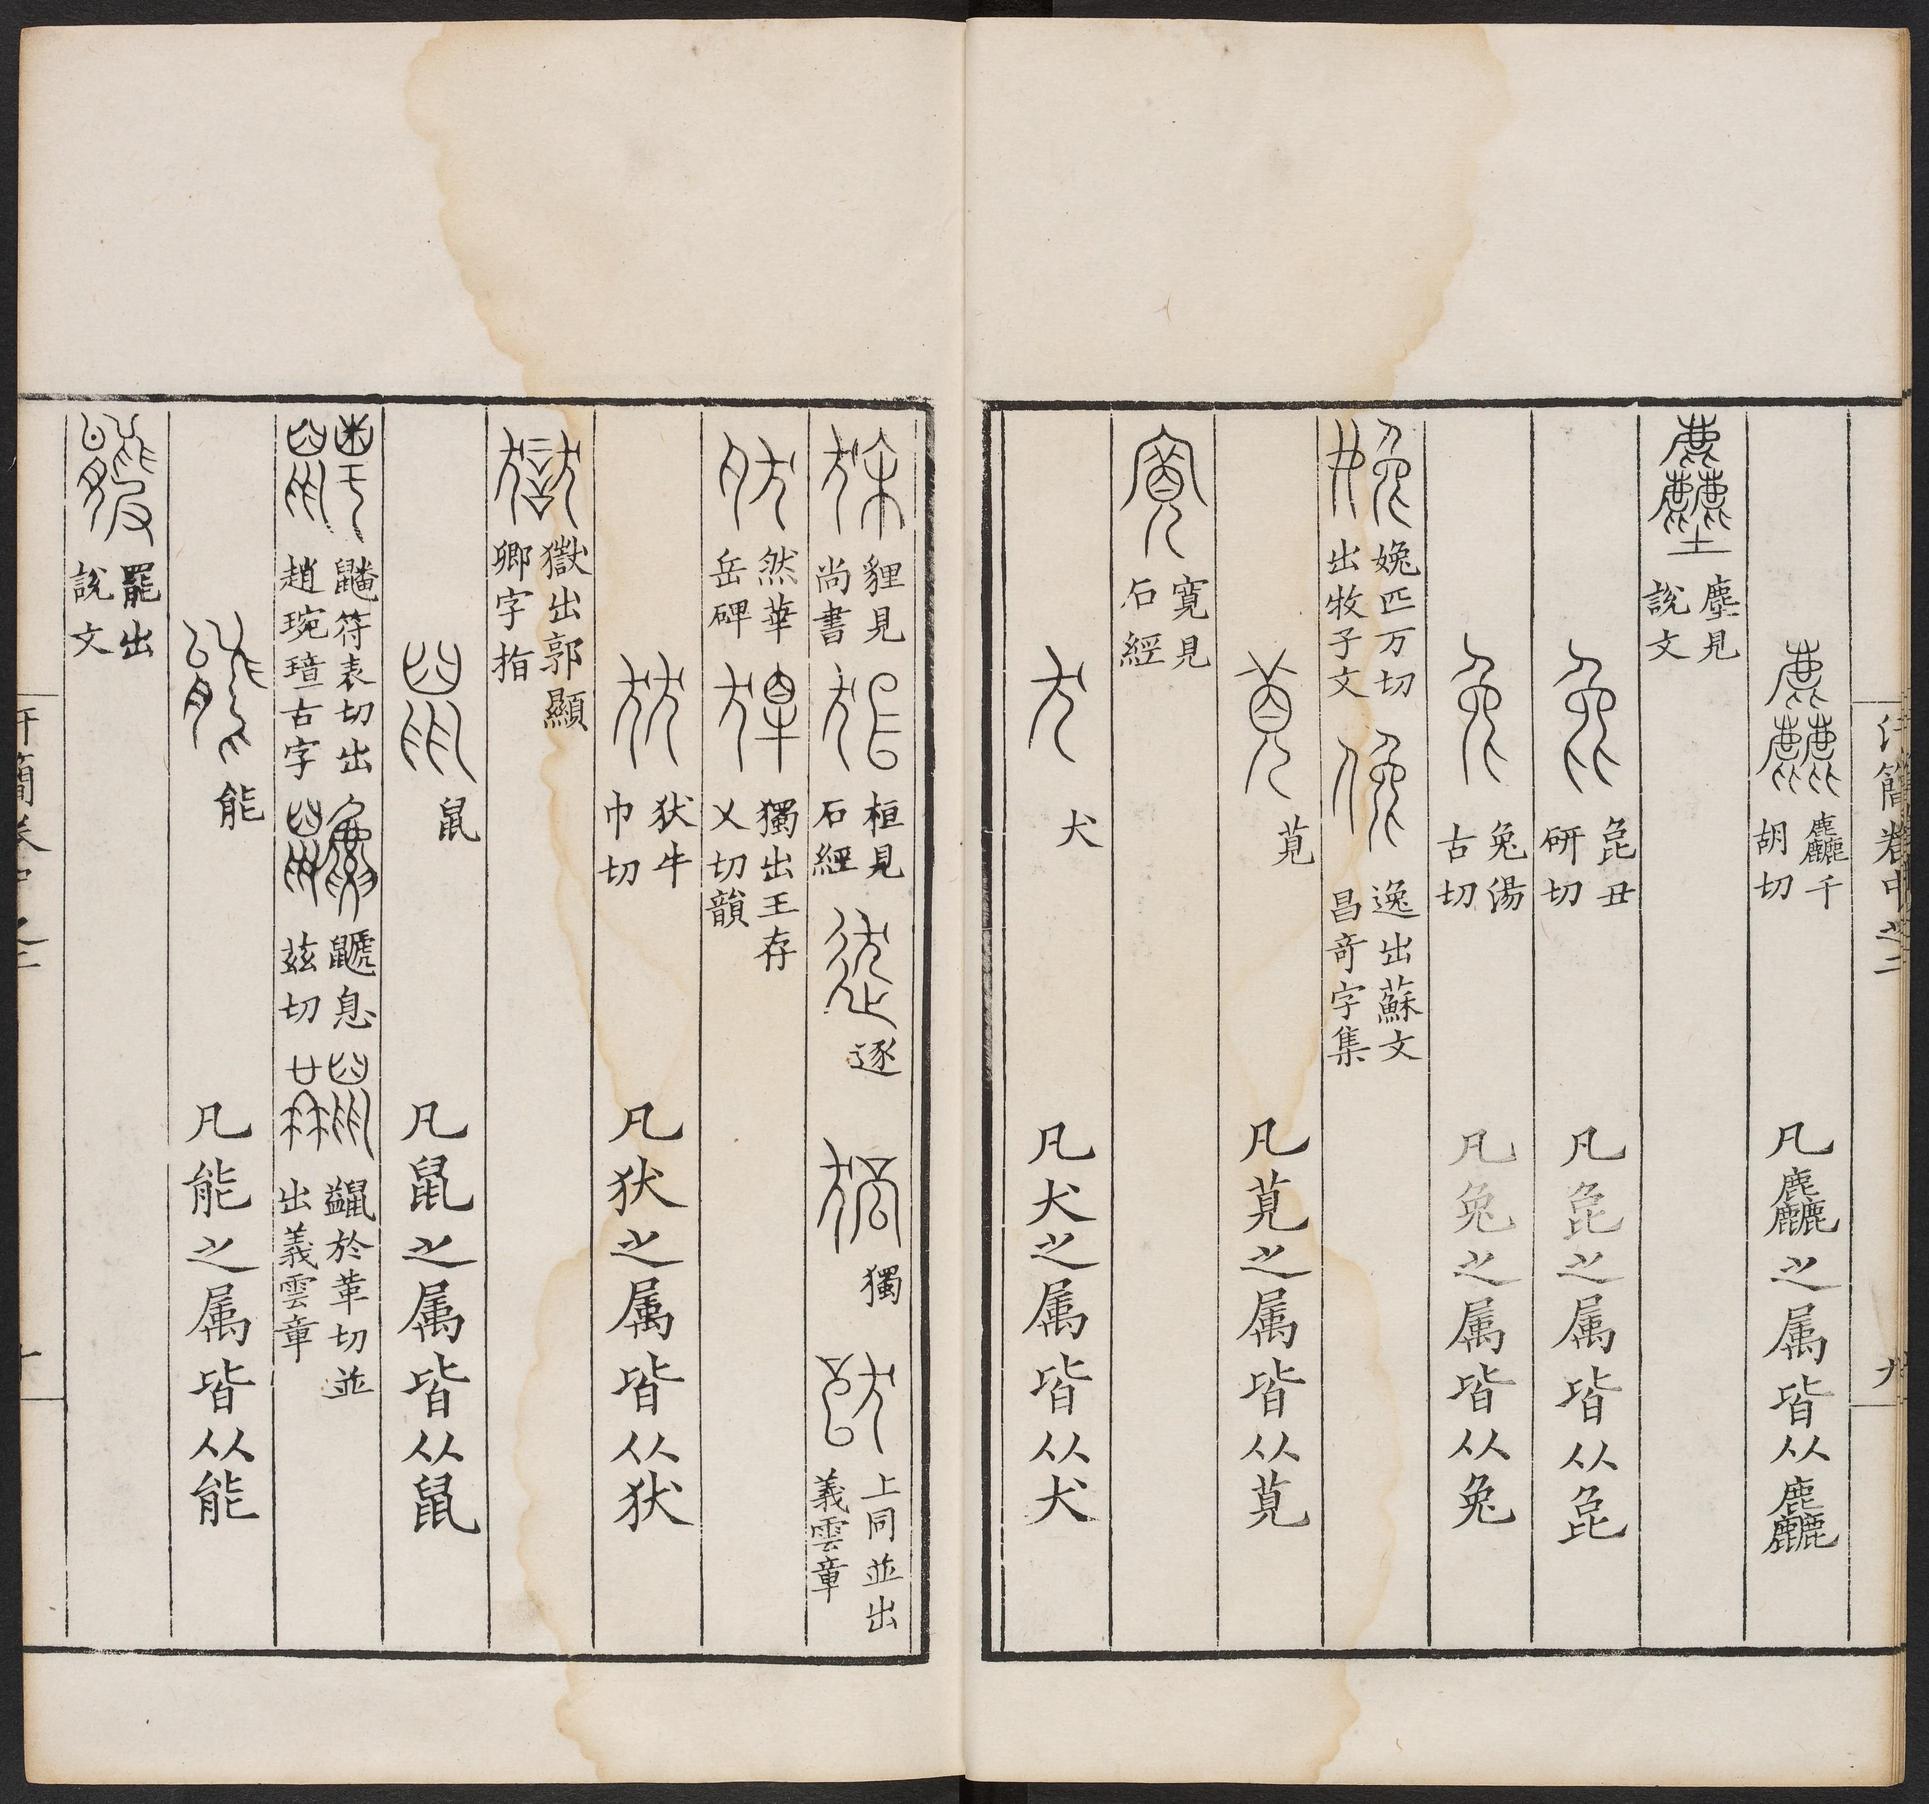 汗簡卷中之二 九
麤千胡切 凡麤之属皆从麤
塵見說文
㲋丑研切 凡㲋之属皆从㲋
兔湯古切 凡兔之属皆从兔
娩匹万切出牧子文 逸出蘇文昌奇字集
萈 凡萈之属皆从萈
寬見石經
犬 凡犬之属皆从犬
貍見尚書 桓見石經 逐 獨 上同並出義雲章
然華岳碑 獨出王存乂切韻
㹜牛巾切 凡㹜之属皆从㹜
獄出郭顯卿字指
鼠 凡鼠之属皆从鼠
鼶息茲切 於革切並出義雲章 符表切出趙琬璋古字
能 凡能之属皆从能
罷出說文
汗簡卷中之二